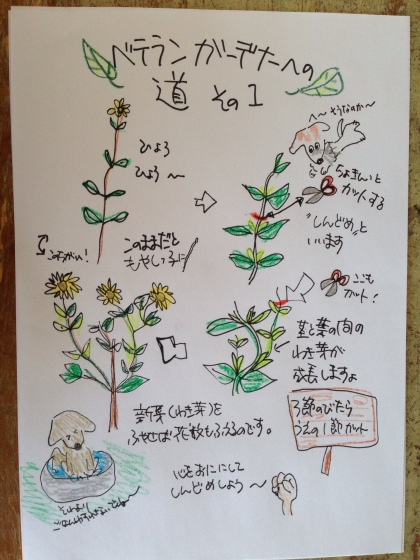 ベテランガーデナーへの
道 その1
ひょろ
ひょろ〜
へ〜そうなのか〜
ちょきんと
カットする
"しんどめ"と
いいます
このままだと
もやしっ子に
ここも
カット!
茎と葉の間の
わき芽が
成長しますよ
新芽(わき芽)を
ふやせば花数もふえるのです。
3節のびたら
うえの1節カット
心をおににして
しんどめしよう〜